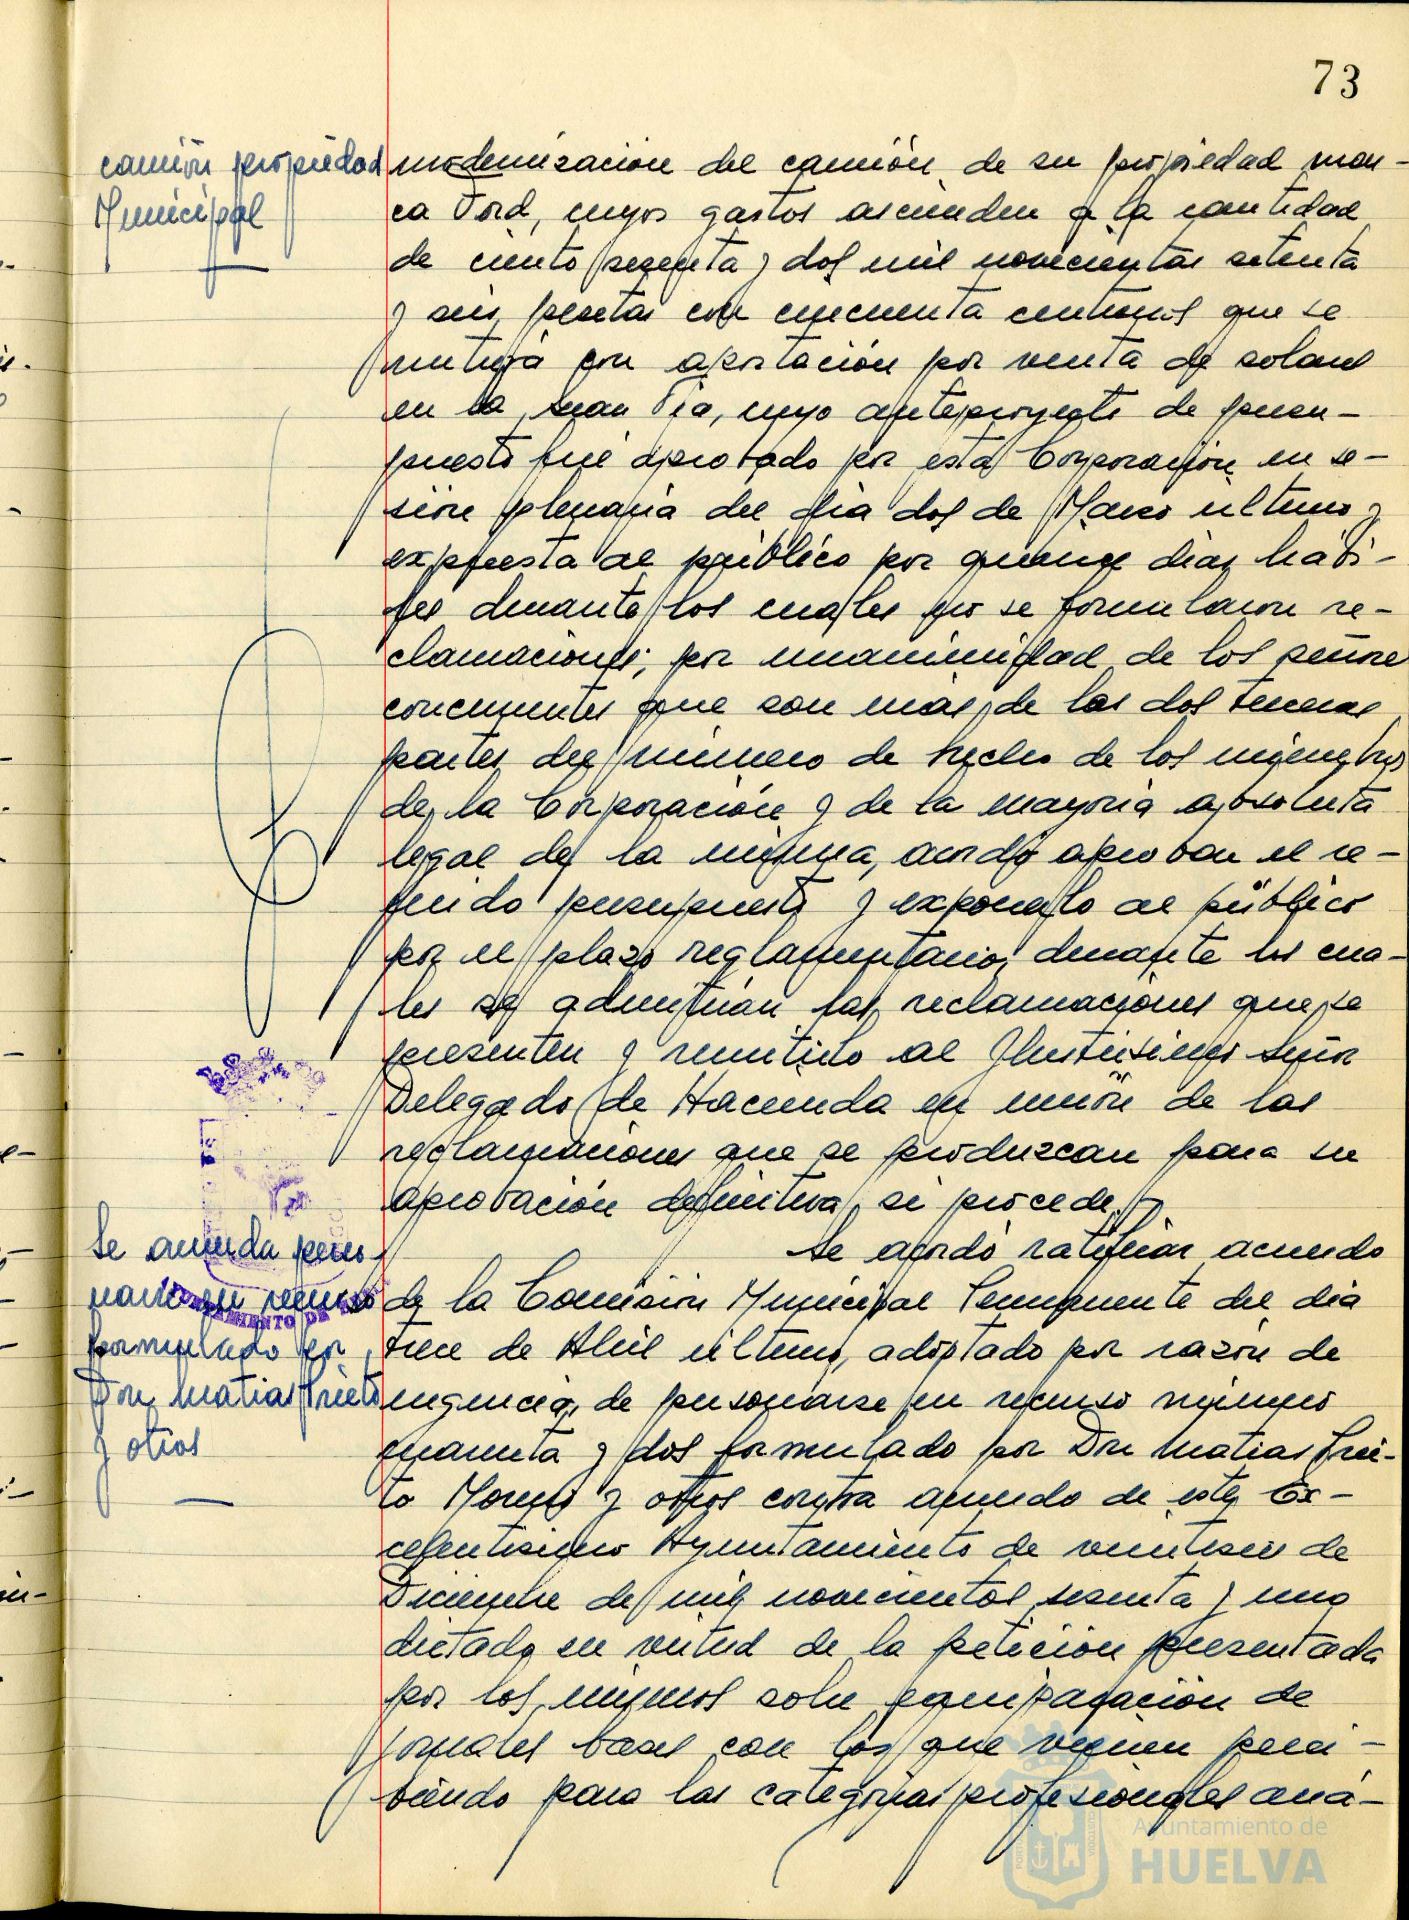 73
camión propiedad
Municipal
modernización del camión de su propiedad mar-
ca Ford, cuyos gastos ascienden a la cantidad
de ciento sesenta y dos mil novecientas setenta
y seis pesetas con cincuenta centimos que se
nutrirá con aportación por venta de solares
en la Gran Via, cuyo anteproyecto de presu-
puesto fué aprobado por esta Corporación en se-
sión plenaria del dia dos de Marzo ultimo y
expuesta al público por quince dias hábi-
les durante los cuales no se formularon re-
clamaciones; por unanimidad de los señores
concurrentes que son más de las dos terceras
partes del número de hecho de los miembros
de la Corporación y de la mayoria absoluta
legal de la misma, acordó aprobar el re-
ferido presupuesto y exponerlo al público
por el plazo reglamentario, durante los cua-
les se admitirán las reclamaciones que se
presenten y remitirlo al Ilustrisimo señor
Delegado de Hacienda en unión de las
reclamaciones que se produzcan para su
aprobación definitiva, si procede.
Se acuerda perso-
narse en recurso
formulado por
Don Matias Prieto
y otros
Se acordó ratificar acuerdo
de la Comisión Municipal Permanente del dia
trece de Abril ultimo, adoptado por razón de
urgencia, de personarse en recurso número
cuarenta y dos formulado por Don Matias Prie-
to Moreno y otros contra acuerdo de este Ex-
celentisimo Ayuntamiento de veintiseis de
Diciembre de mil novecientos sesenta y uno
dictado en virtud de la petición presentada
por los mismos sobre equiparación de
jornales bases con los que vienen perci-
biendo para las categorias profesionales aná-
Ayuntamiento de
HUELVA